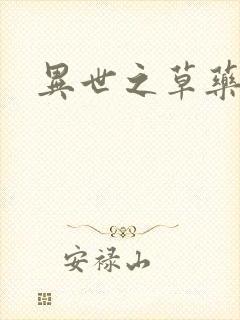 異世之草藥
安禄山